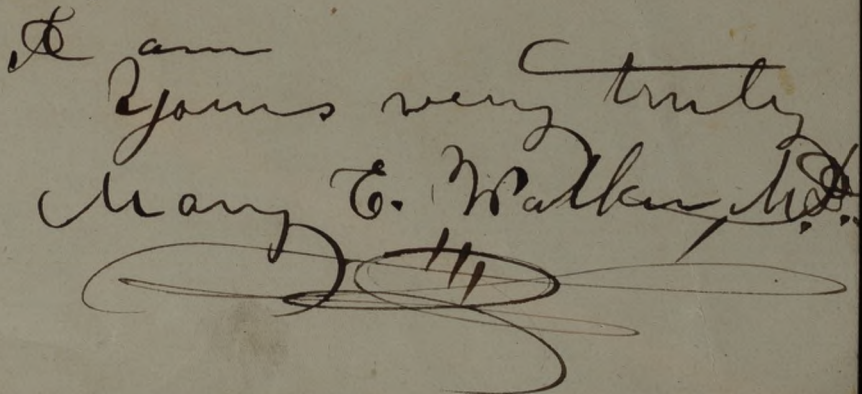 I am
Yours very truly
Mary E. Walker, M.D.